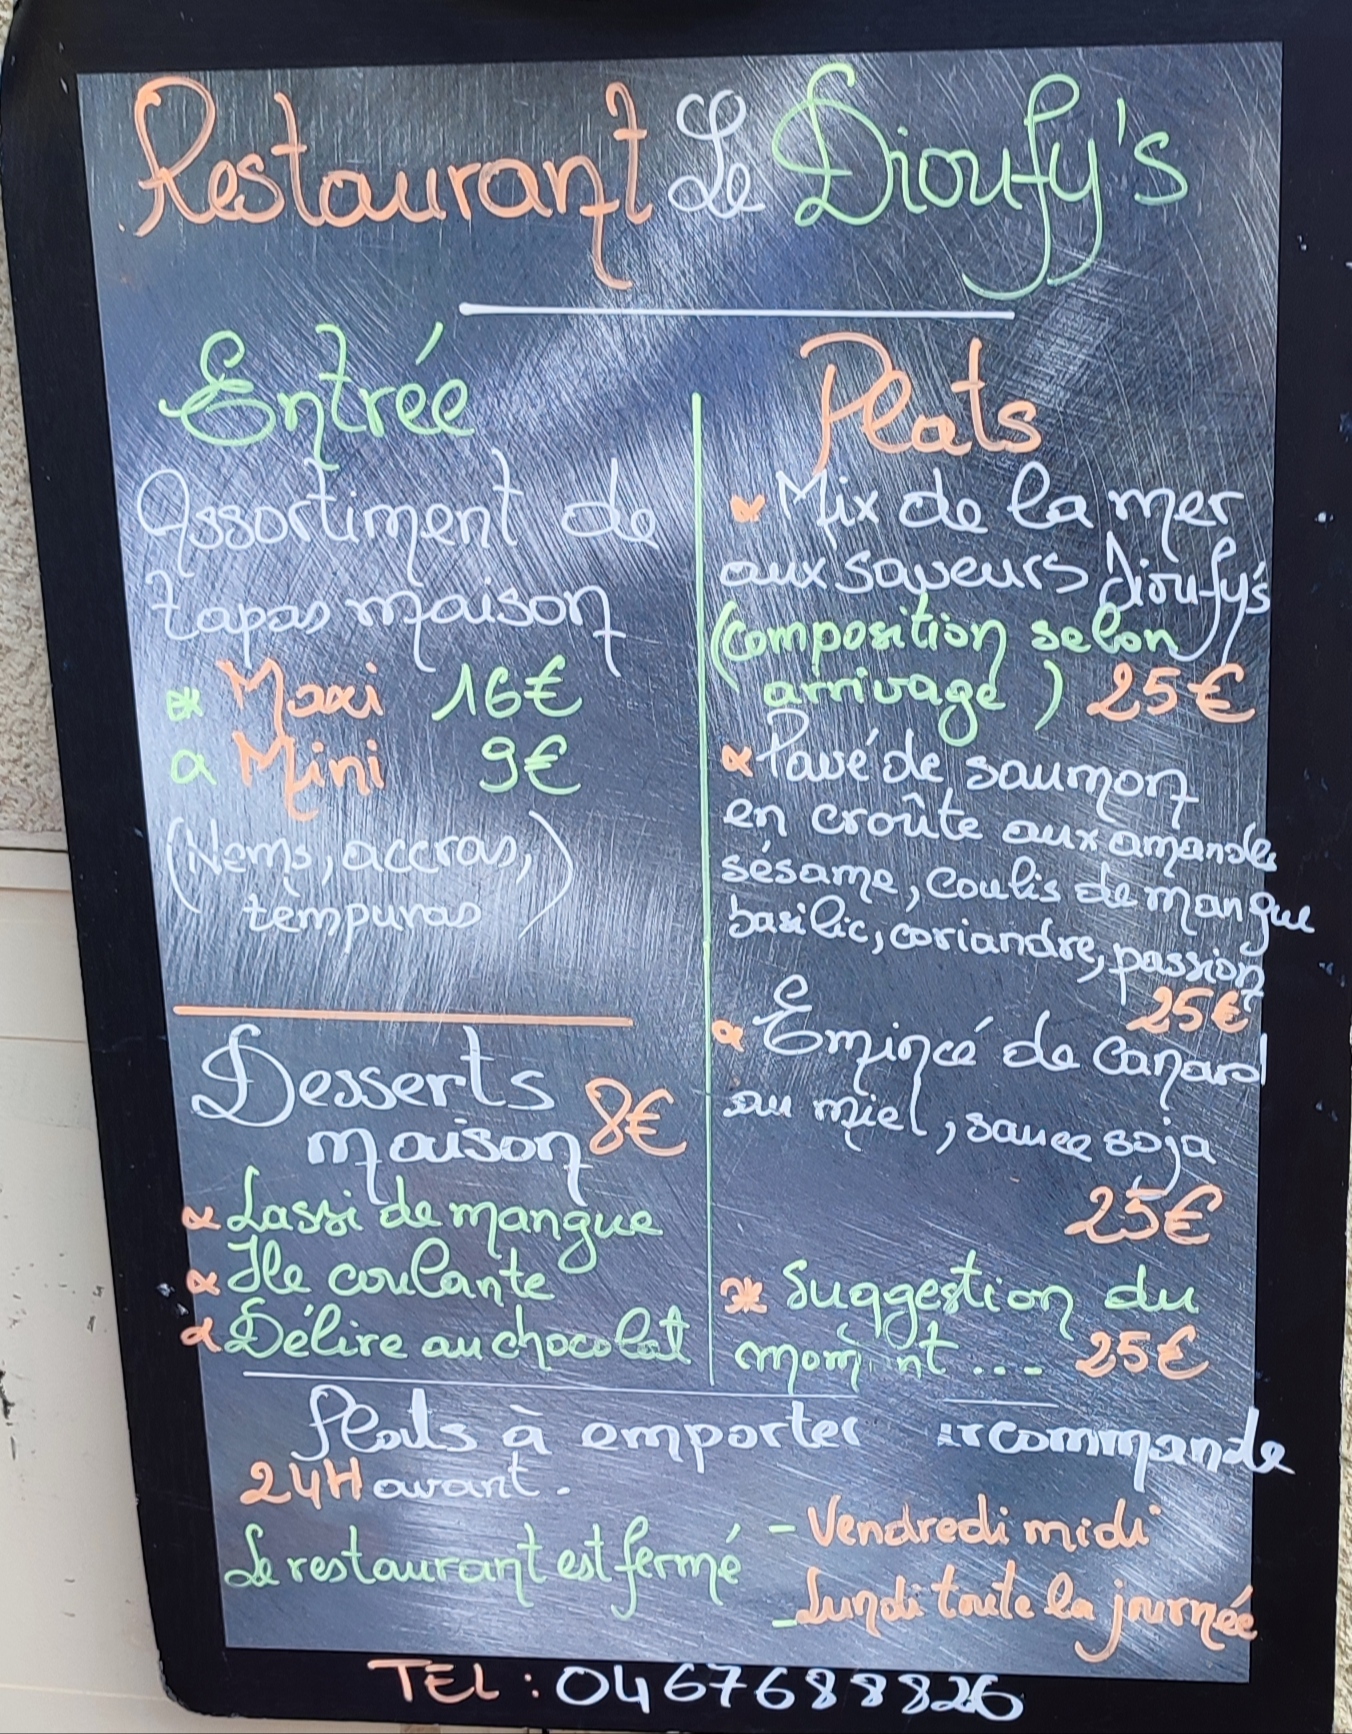 Restaurant Le Dioufy's
Entrée
Assortiment de
tapas maison
Maxi 16€
Mini 9€
(Nems, accras,
tempuras)
Desserts
maison 8€
Lassi de mangue
Ile coulante
Délire au chocolat
Plats
Mix de la mer
aux saveurs Dioufy's
(Composition selon
arrivage) 25€
Pavé de saumon
en croûte aux amandes
sésame, coulis de mangue
basilic, coriandre, passion
25€
Emincé de canard
au miel, sauce soja
25€
Suggestion du
moment... 25€
Plats à emporter commande
24H avant.
Le restaurant est fermé
- Vendredi midi
- Lundi toute la journée
TEL : 0467688826